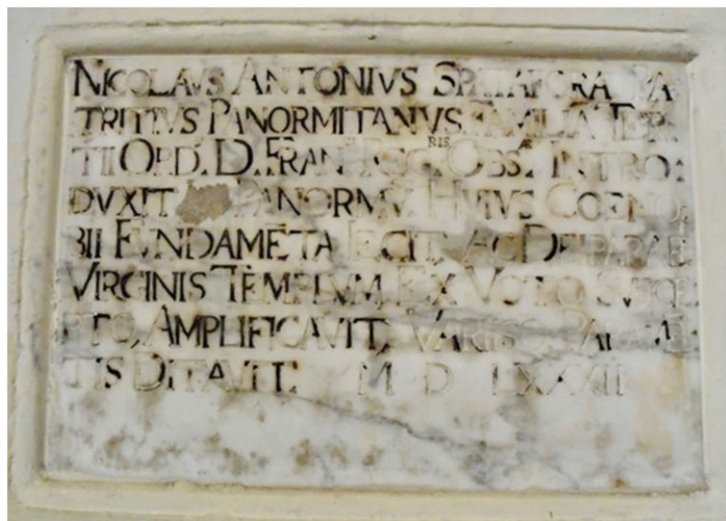 NICOLAVS ANTONIVS SPATAFORA PA-
TRITIVS PANORMITANVS FAMILIÃ TER-
TII ORD. D. FRANCISCI RIS OBS. INTRO:
DVXIT PANORMV̄. HVIVS COENO,
BII FVNDAMĒTA IECIT, AC DEIPARAE
VIRGINIS TEMPLVM, EX VOTO SVSCE
PTO, AMPLIFICAVIT,
TIS DITAVIT. M D LXXXII